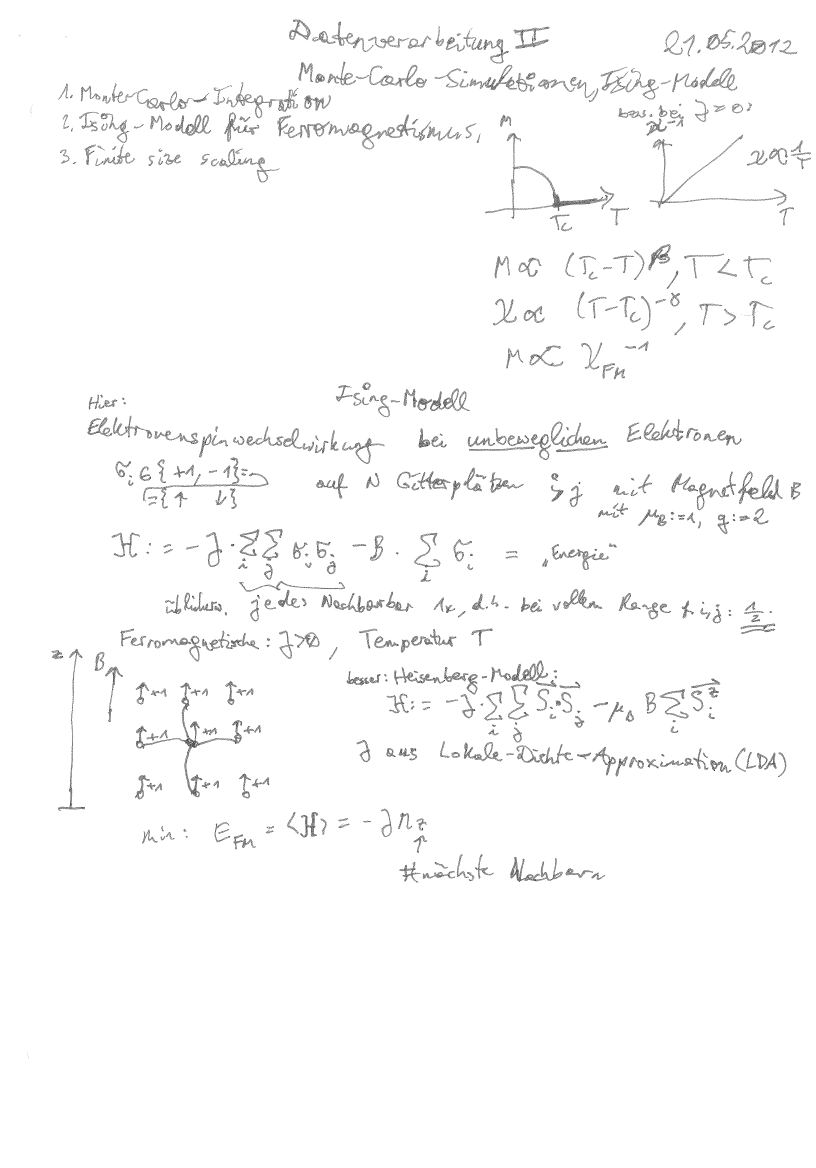 Datenverarbeitung II 21.05.2012
Monte-Carlo-Simulationen, Ising-Modell
1. Monte-Carlo-Integration
2. Ising-Modell für Ferromagnetismus,
3. Finite size scaling
M
Tc T
bes. bei J=0:
χ⁻¹
χ∝1/T
T
M∝ (Tc-T)^β, T<Tc
χ∝ (T-Tc)^-γ, T>Tc
M∝ χ_FM^-1
Ising-Modell
Hier:
Elektronenspinwechselwirkung bei unbeweglichen Elektronen
σi∈{+1, -1}= auf N Gitterplätzen i,j mit Magnetfeld B
={↑ ↓} mit μB:=1, g:=2
H := -J · Σi Σj σi σj - B · Σi σi = „Energie“
üblicherw. jedes Nachbarpaar 1x, d.h. bei vollem Range f. i,j: 1/2.
Ferromagnetische: J>0, Temperatur T
z B
+1 +1 +1
+1 +1 +1
+1 +1 +1
besser: Heisenberg-Modell:
H := -J · Σi Σj Si · Sj - μB B Σi Si^z
J aus Lokale-Dichte-Approximation (LDA)
min: E_FM = <H> = -J n z
↑
#nächste Nachbarn